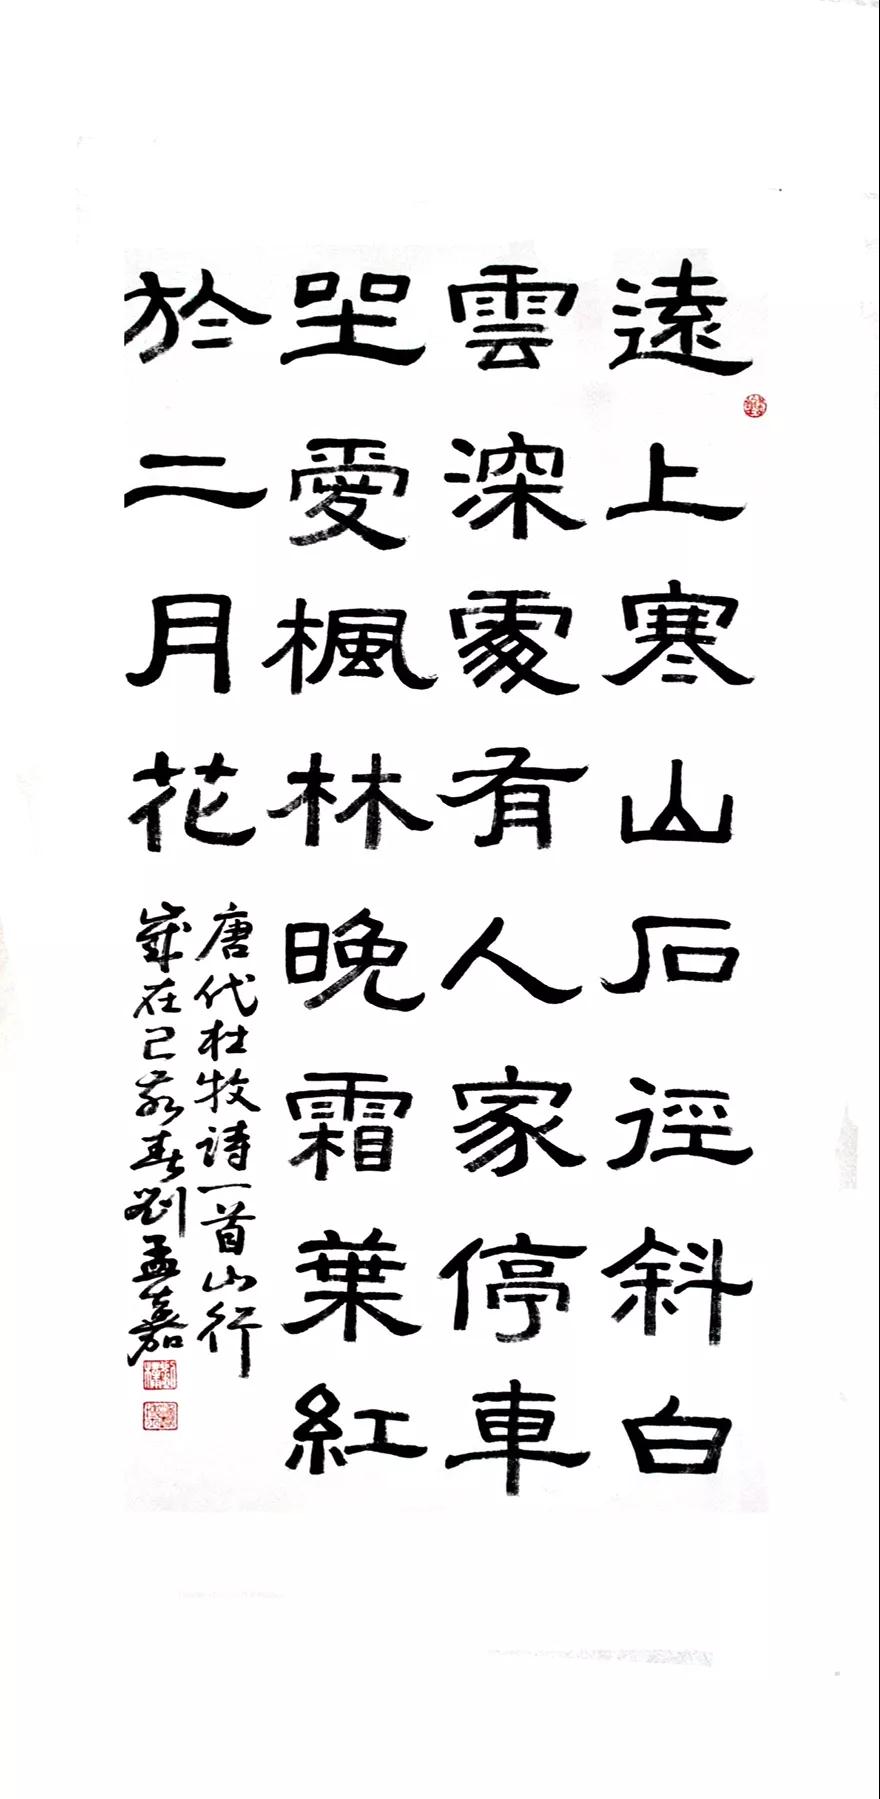 遠上寒山石徑斜白
雲深處有人家停車
坐愛楓林晚霜葉紅
於二月花
唐代杜牧詩一首山行
歲在己亥春劉孟嘉